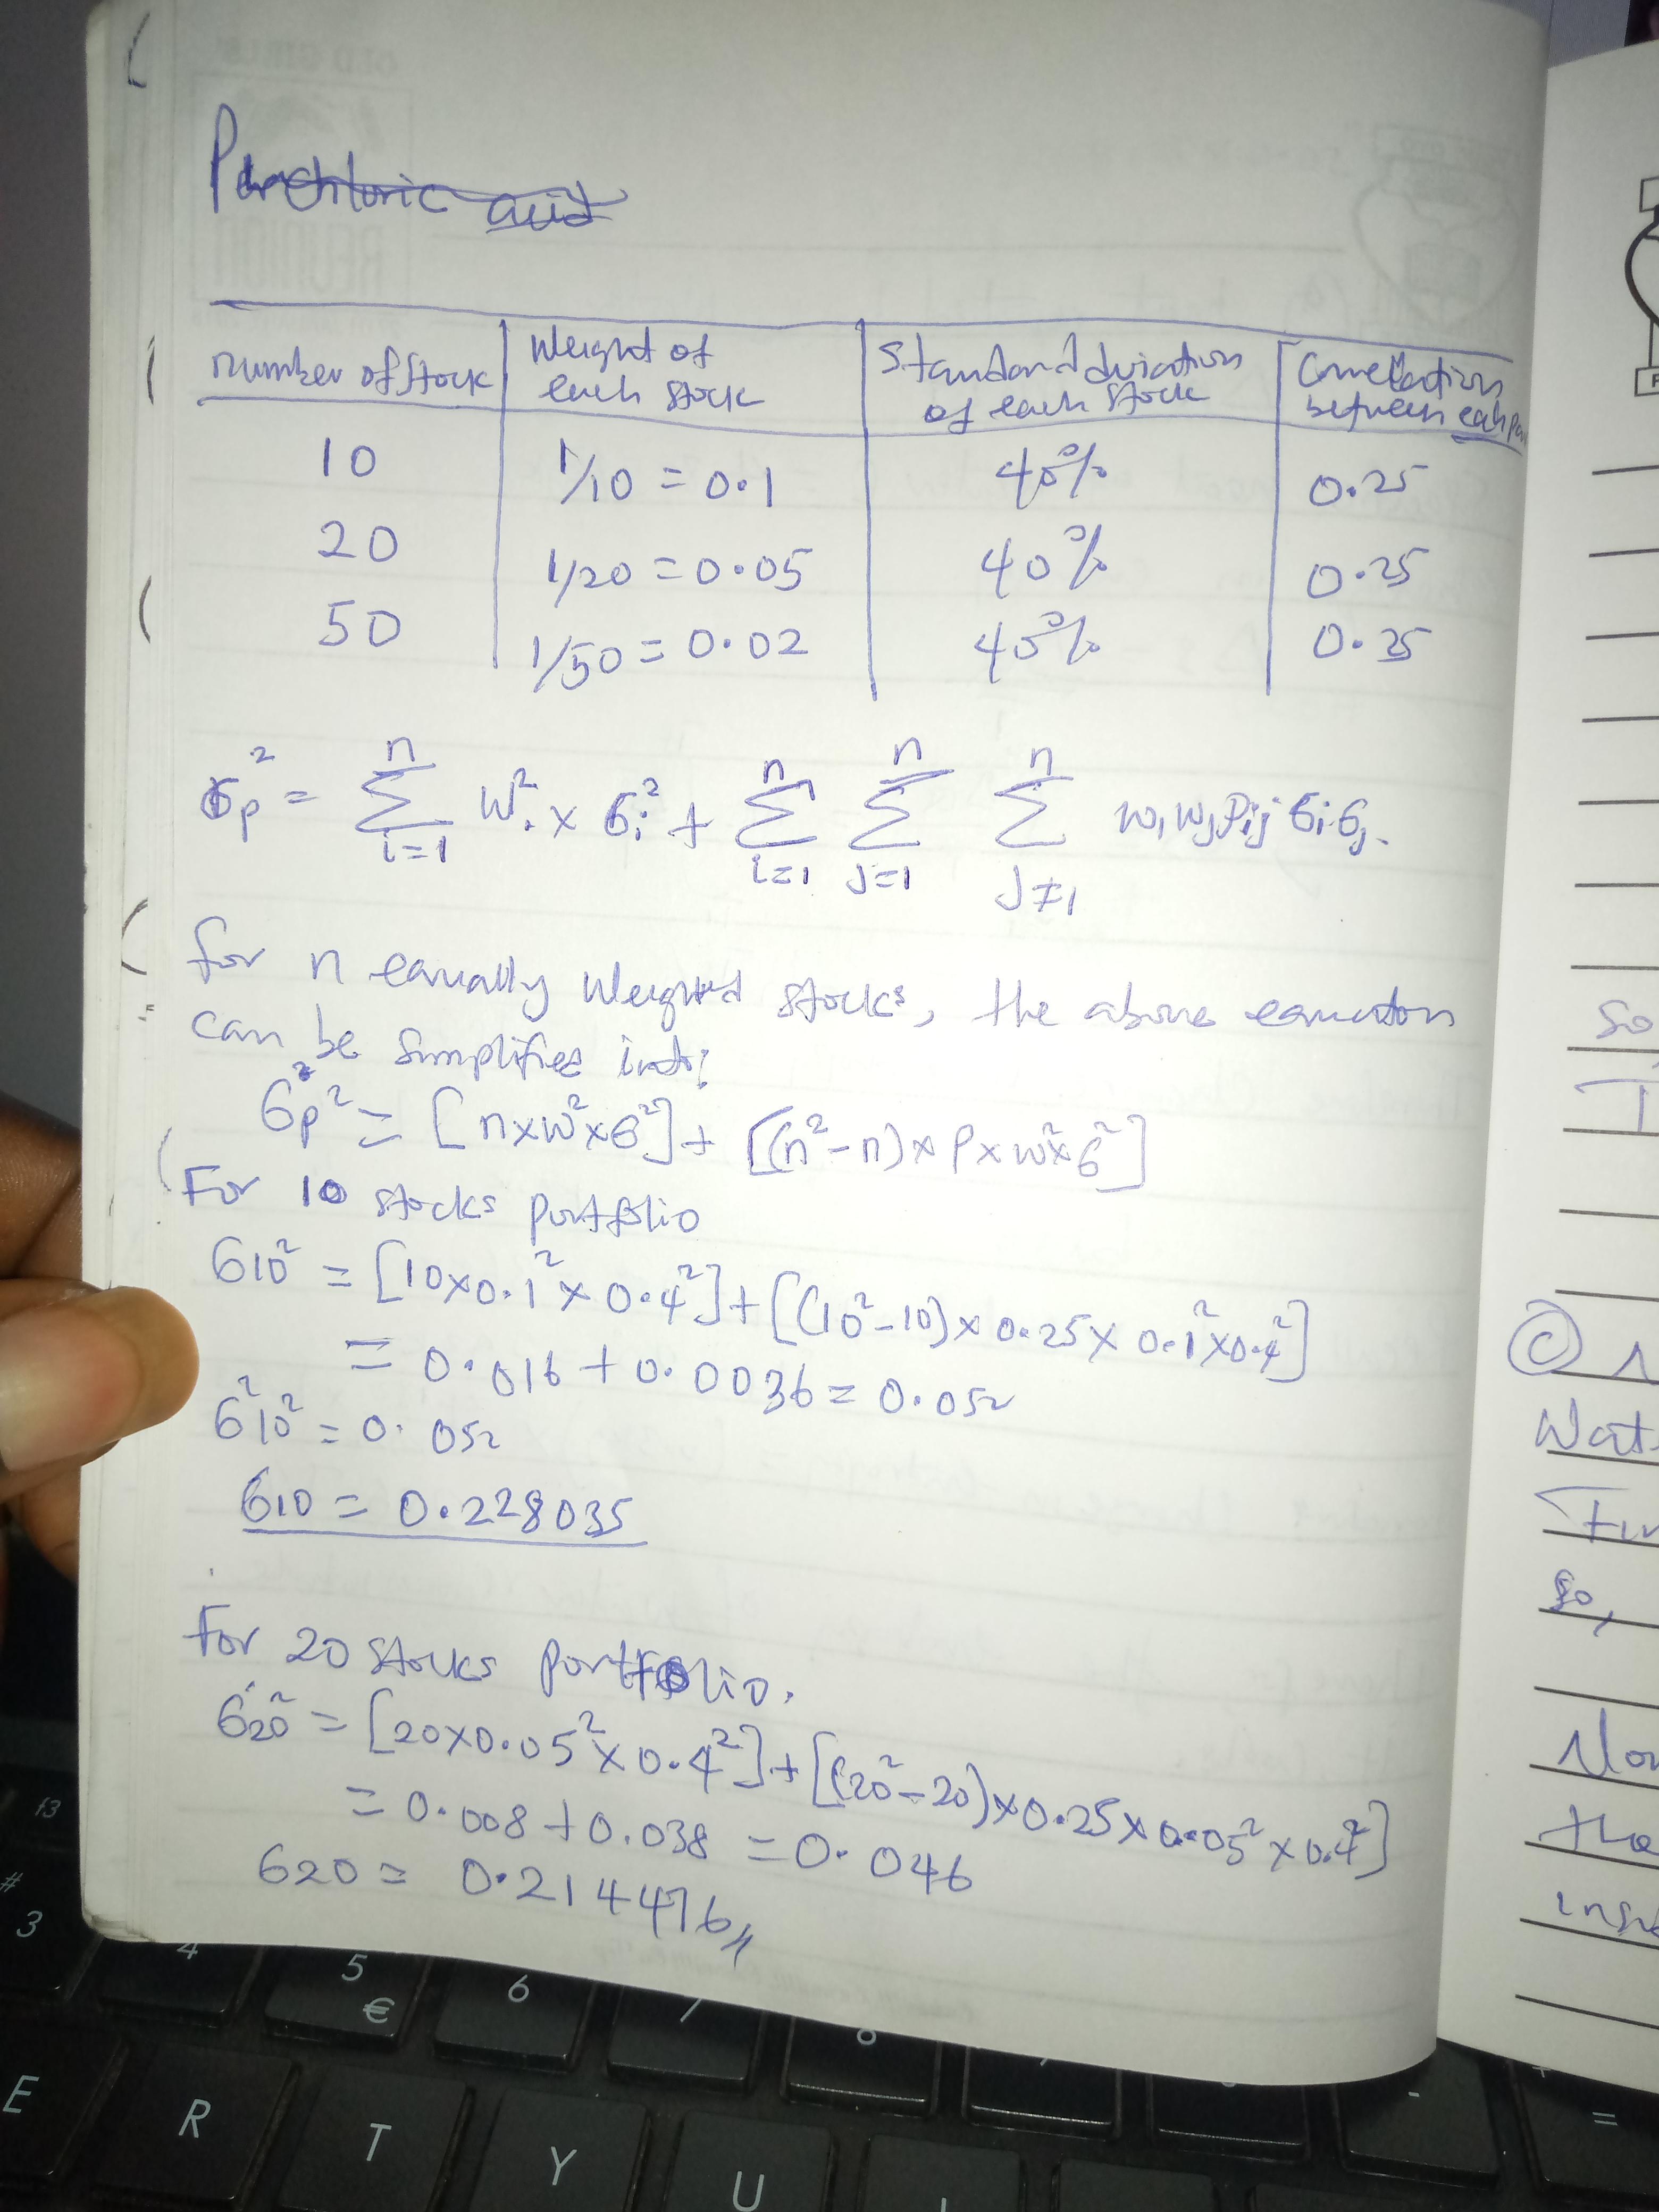 Perchloric acid
number of stock | Weight of each stock | Standard diviation of each stock | Correlation between each
10 | 1/10 = 0.1 | 40% | 0.25
20 | 1/20 = 0.05 | 40% | 0.25
50 | 1/50 = 0.02 | 40% | 0.25
σp² = n Σ i=1 w²i × σi² + n Σ i=1 n Σ j=1 n Σ j≠1 wi wj ρij σi σj.
for n equally weighted stocks, the above equation
can be simplifies into:
σp² = [n×w²×σ²] + [(n²-n)×ρ×w²×σ²]
For 10 stocks portfolio
σ10² = [10×0.1²×0.4²] + [(10²-10)×0.25×0.1²×0.4²]
= 0.016 + 0.0036 = 0.052
σ²10² = 0.052
σ10 = 0.228035
For 20 stocks portfolio.
σ20² = [20×0.05²×0.4²] + [(20²-20)×0.25×0.05²×0.4²]
= 0.008 + 0.038 = 0.046
σ20 = 0.214476
So
Wat
So,
the
f3
#
3
4
5
€
6
7
E
R
T
Y
U
-
=